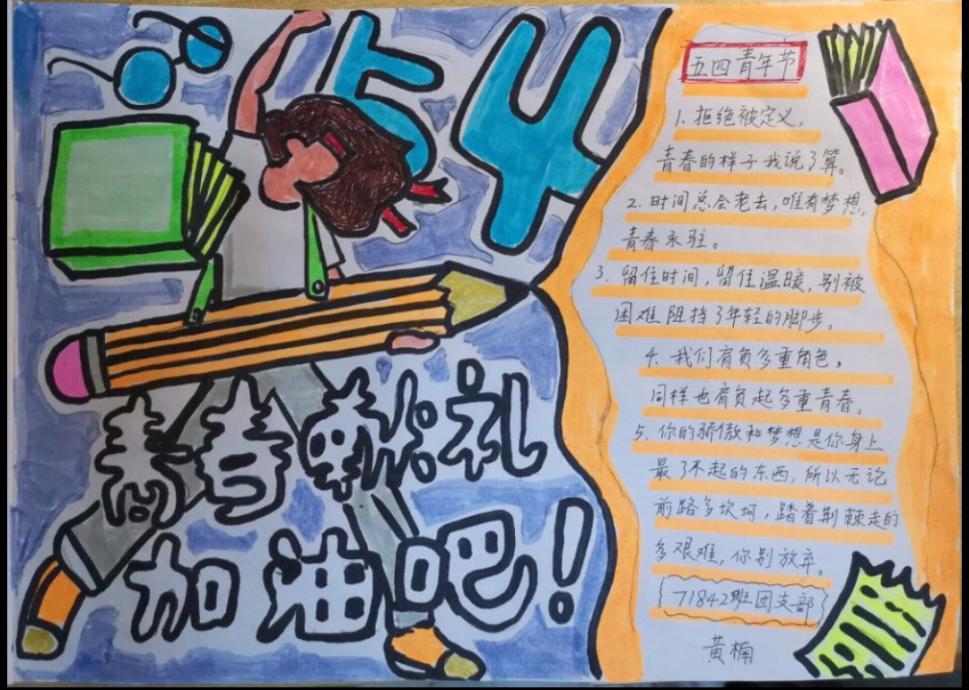 54
青春献礼
加油吧!
五四青年节
1. 拒绝被定义,
青春的样子我说了算。
2. 时间总会老去,唯有梦想,
青春永驻。
3. 留住时间,留住温暖,别被
困难阻挡了年轻的脚步。
4. 我们肩负多重角色,
同样也肩负起多重青春。
5. 你的骄傲和梦想是你身上
最了不起的东西,所以无论
前路多坎坷,踏着荆棘走的
多艰难,你别放弃。
71842班团支部
黄楠